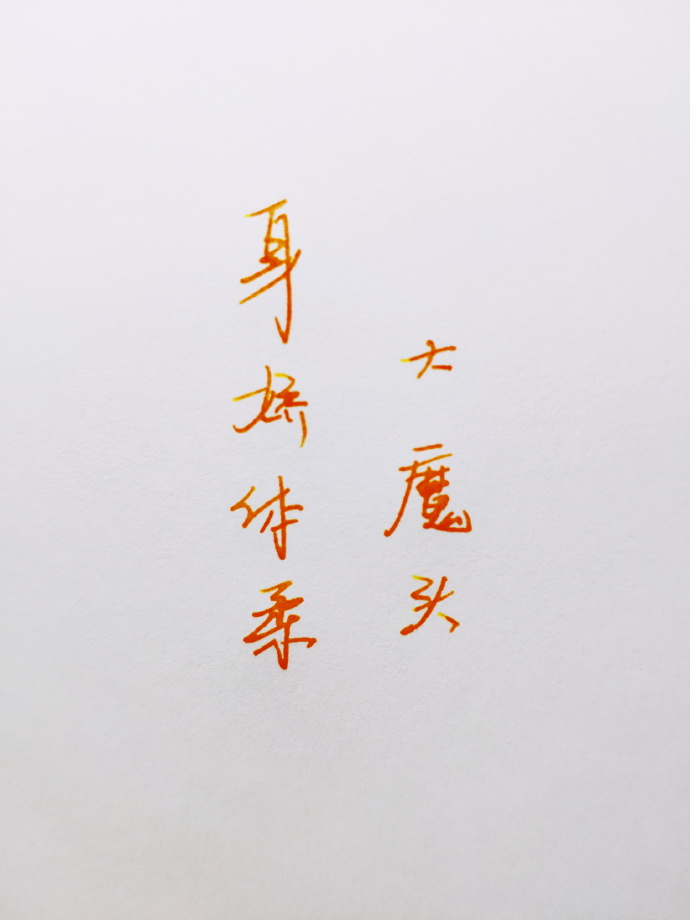 大魔头
身娇体柔